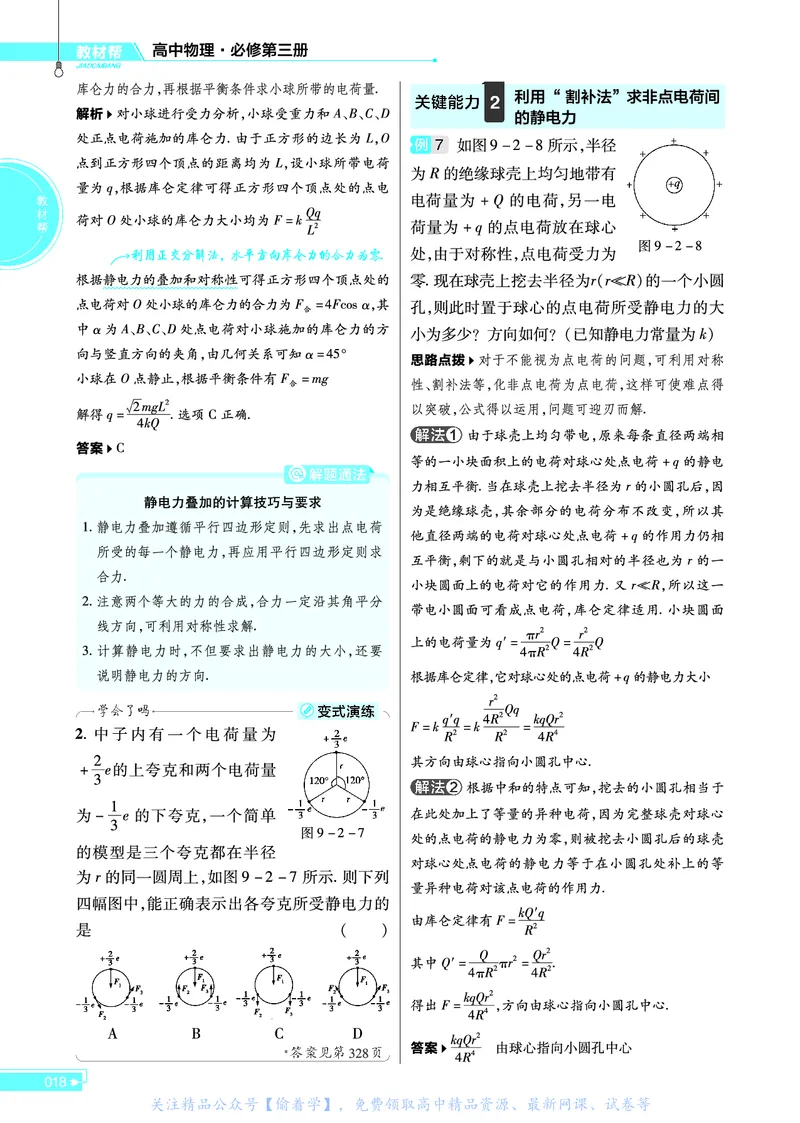 教材帮 高中物理·必修第三册
JIAOCAIBANG
教材帮
库仑力的合力,再根据平衡条件求小球所带的电荷量.
解析▶对小球进行受力分析,小球受重力和A、B、C、D
处正点电荷施加的库仑力.由于正方形的边长为L,O
点到正方形四个顶点的距离均为L,设小球所带电荷
量为q,根据库仑定律可得正方形四个顶点处的点电
荷对O处小球的库仑力大小均为F=k\frac{Qq}{L^2}
利用正交分解法,水平方向库仑力的合力为零.
根据静电力的叠加和对称性可得正方形四个顶点处的
点电荷对O处小球的库仑力的合力为F合=4Fcos α,其
中α为A、B、C、D处点电荷对小球施加的库仑力的方
向与竖直方向的夹角,由几何关系可知α=45°
小球在O点静止,根据平衡条件有F合=mg
解得q=\frac{\sqrt{2}mgL^2}{4kQ}.选项C正确.
答案▶C
解题通法
静电力叠加的计算技巧与要求
1. 静电力叠加遵循平行四边形定则,先求出点电荷
所受的每一个静电力,再应用平行四边形定则求
合力.
2. 注意两个等大的力的合成,合力一定沿其角平分
线方向,可利用对称性求解.
3. 计算静电力时,不但要求出静电力的大小,还要
说明静电力的方向.
学会了吗 变式演练
2. 中子内有一个电荷量为
+\frac{2}{3}e的上夸克和两个电荷量
为-\frac{1}{3}e的下夸克,一个简单
的模型是三个夸克都在半径
为r的同一圆周上,如图9-2-7所示.则下列
四幅图中,能正确表示出各夸克所受静电力的
是 ( )
+\frac{2}{3}e
r
120° 120°
r r
-\frac{1}{3}e -\frac{1}{3}e
图9-2-7
+\frac{2}{3}e +\frac{2}{3}e +\frac{2}{3}e +\frac{2}{3}e
F₁ F₃ F₂ F₁ F₃ F₁ F₂ F₁ F₃
-\frac{1}{3}e -\frac{1}{3}e -\frac{1}{3}e -\frac{1}{3}e -\frac{1}{3}e -\frac{1}{3}e -\frac{1}{3}e -\frac{1}{3}e
F₂ F₂ F₃
A B C D
*答案见第328页
018
关键能力 2 利用“割补法”求非点电荷间
的静电力
例7 如图9-2-8所示,半径
为R的绝缘球壳上均匀地带有
电荷量为+Q的电荷,另一电
荷量为+q的点电荷放在球心
处,由于对称性,点电荷受力为
零.现在球壳上挖去半径为r(r≪R)的一个小圆
孔,则此时置于球心的点电荷所受静电力的大
小为多少?方向如何?(已知静电力常量为k)
+q
图9-2-8
思路点拨▶对于不能视为点电荷的问题,可利用对称
性、割补法等,化非点电荷为点电荷,这样可使难点得
以突破,公式得以运用,问题可迎刃而解.
解法① 由于球壳上均匀带电,原来每条直径两端相
等的一小块面积上的电荷对球心处点电荷+q的静电
力相互平衡.当在球壳上挖去半径为r的小圆孔后,因
为是绝缘球壳,其余部分的电荷分布不改变,所以其
他直径两端的电荷对球心处点电荷+q的作用力仍相
互平衡,剩下的就是与小圆孔相对的半径也为r的一
小块圆面上的电荷对它的作用力.又r≪R,所以这一
带电小圆面可看成点电荷,库仑定律适用.小块圆面
上的电荷量为q′=\frac{πr^2}{4πR^2}Q=\frac{r^2}{4R^2}Q
根据库仑定律,它对球心处的点电荷+q的静电力大小
F=k\frac{q′q}{R^2}=k\frac{\frac{r^2}{4R^2}Qq}{R^2}=\frac{kqQr^2}{4R^4}
其方向由球心指向小圆孔中心.
解法② 根据中和的特点可知,挖去的小圆孔相当于
在此处加上了等量的异种电荷,因为完整球壳对球心
处的点电荷的静电力为零,则被挖去小圆孔后的球壳
对球心处点电荷的静电力等于在小圆孔处补上的等
量异种电荷对该点电荷的作用力.
由库仑定律有F=\frac{kQ′q}{R^2}
其中Q′=\frac{Q}{4πR^2}πr^2=\frac{Qr^2}{4R^2}.
得出F=\frac{kqQr^2}{4R^4},方向由球心指向小圆孔中心.
答案▶\frac{kqQr^2}{4R^4} 由球心指向小圆孔中心
关注精品公众号【偷着学】,免费领取高中精品资源、最新网课、试卷等